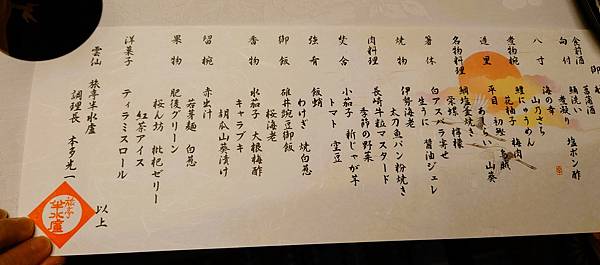 御
食前酒 菖蒲酒
向付 鯛洗い
煮凝り 塩ポン酢
八寸 海の幸
山乃さち
煮物椀 鱧にゅうめん
花柚子 梅肉
造里 平目 初鰹 烏賊
あしらい 山葵
名物料理 鯛塩釜焼き
栄螺 檸檬
箸休 白アスペラ寄せ
生うに 醤油ジェレ
焼物 伊勢海老
太刀魚パン粉焼き
肉料理 長崎牛粒マスタード
季節の野菜
焚合 小茄子 新じゃが芋
トマト 空豆
強肴 飯蛸
わけぎ 焼白葱
御飯 碓井豌豆御飯
桜海老
香物 水茄子 大根梅酢
キャラブキ
胡瓜山葵漬け
留椀 赤出汁
若芽麺 白葱
果物 肥後グリーン
桜ん坊 枇杷ゼリー
紅茶アイス
洋菓子 ティラミスロール
以上
雲仙 旅亭半水盧
調理長 本多光一
旅亭
半水盧